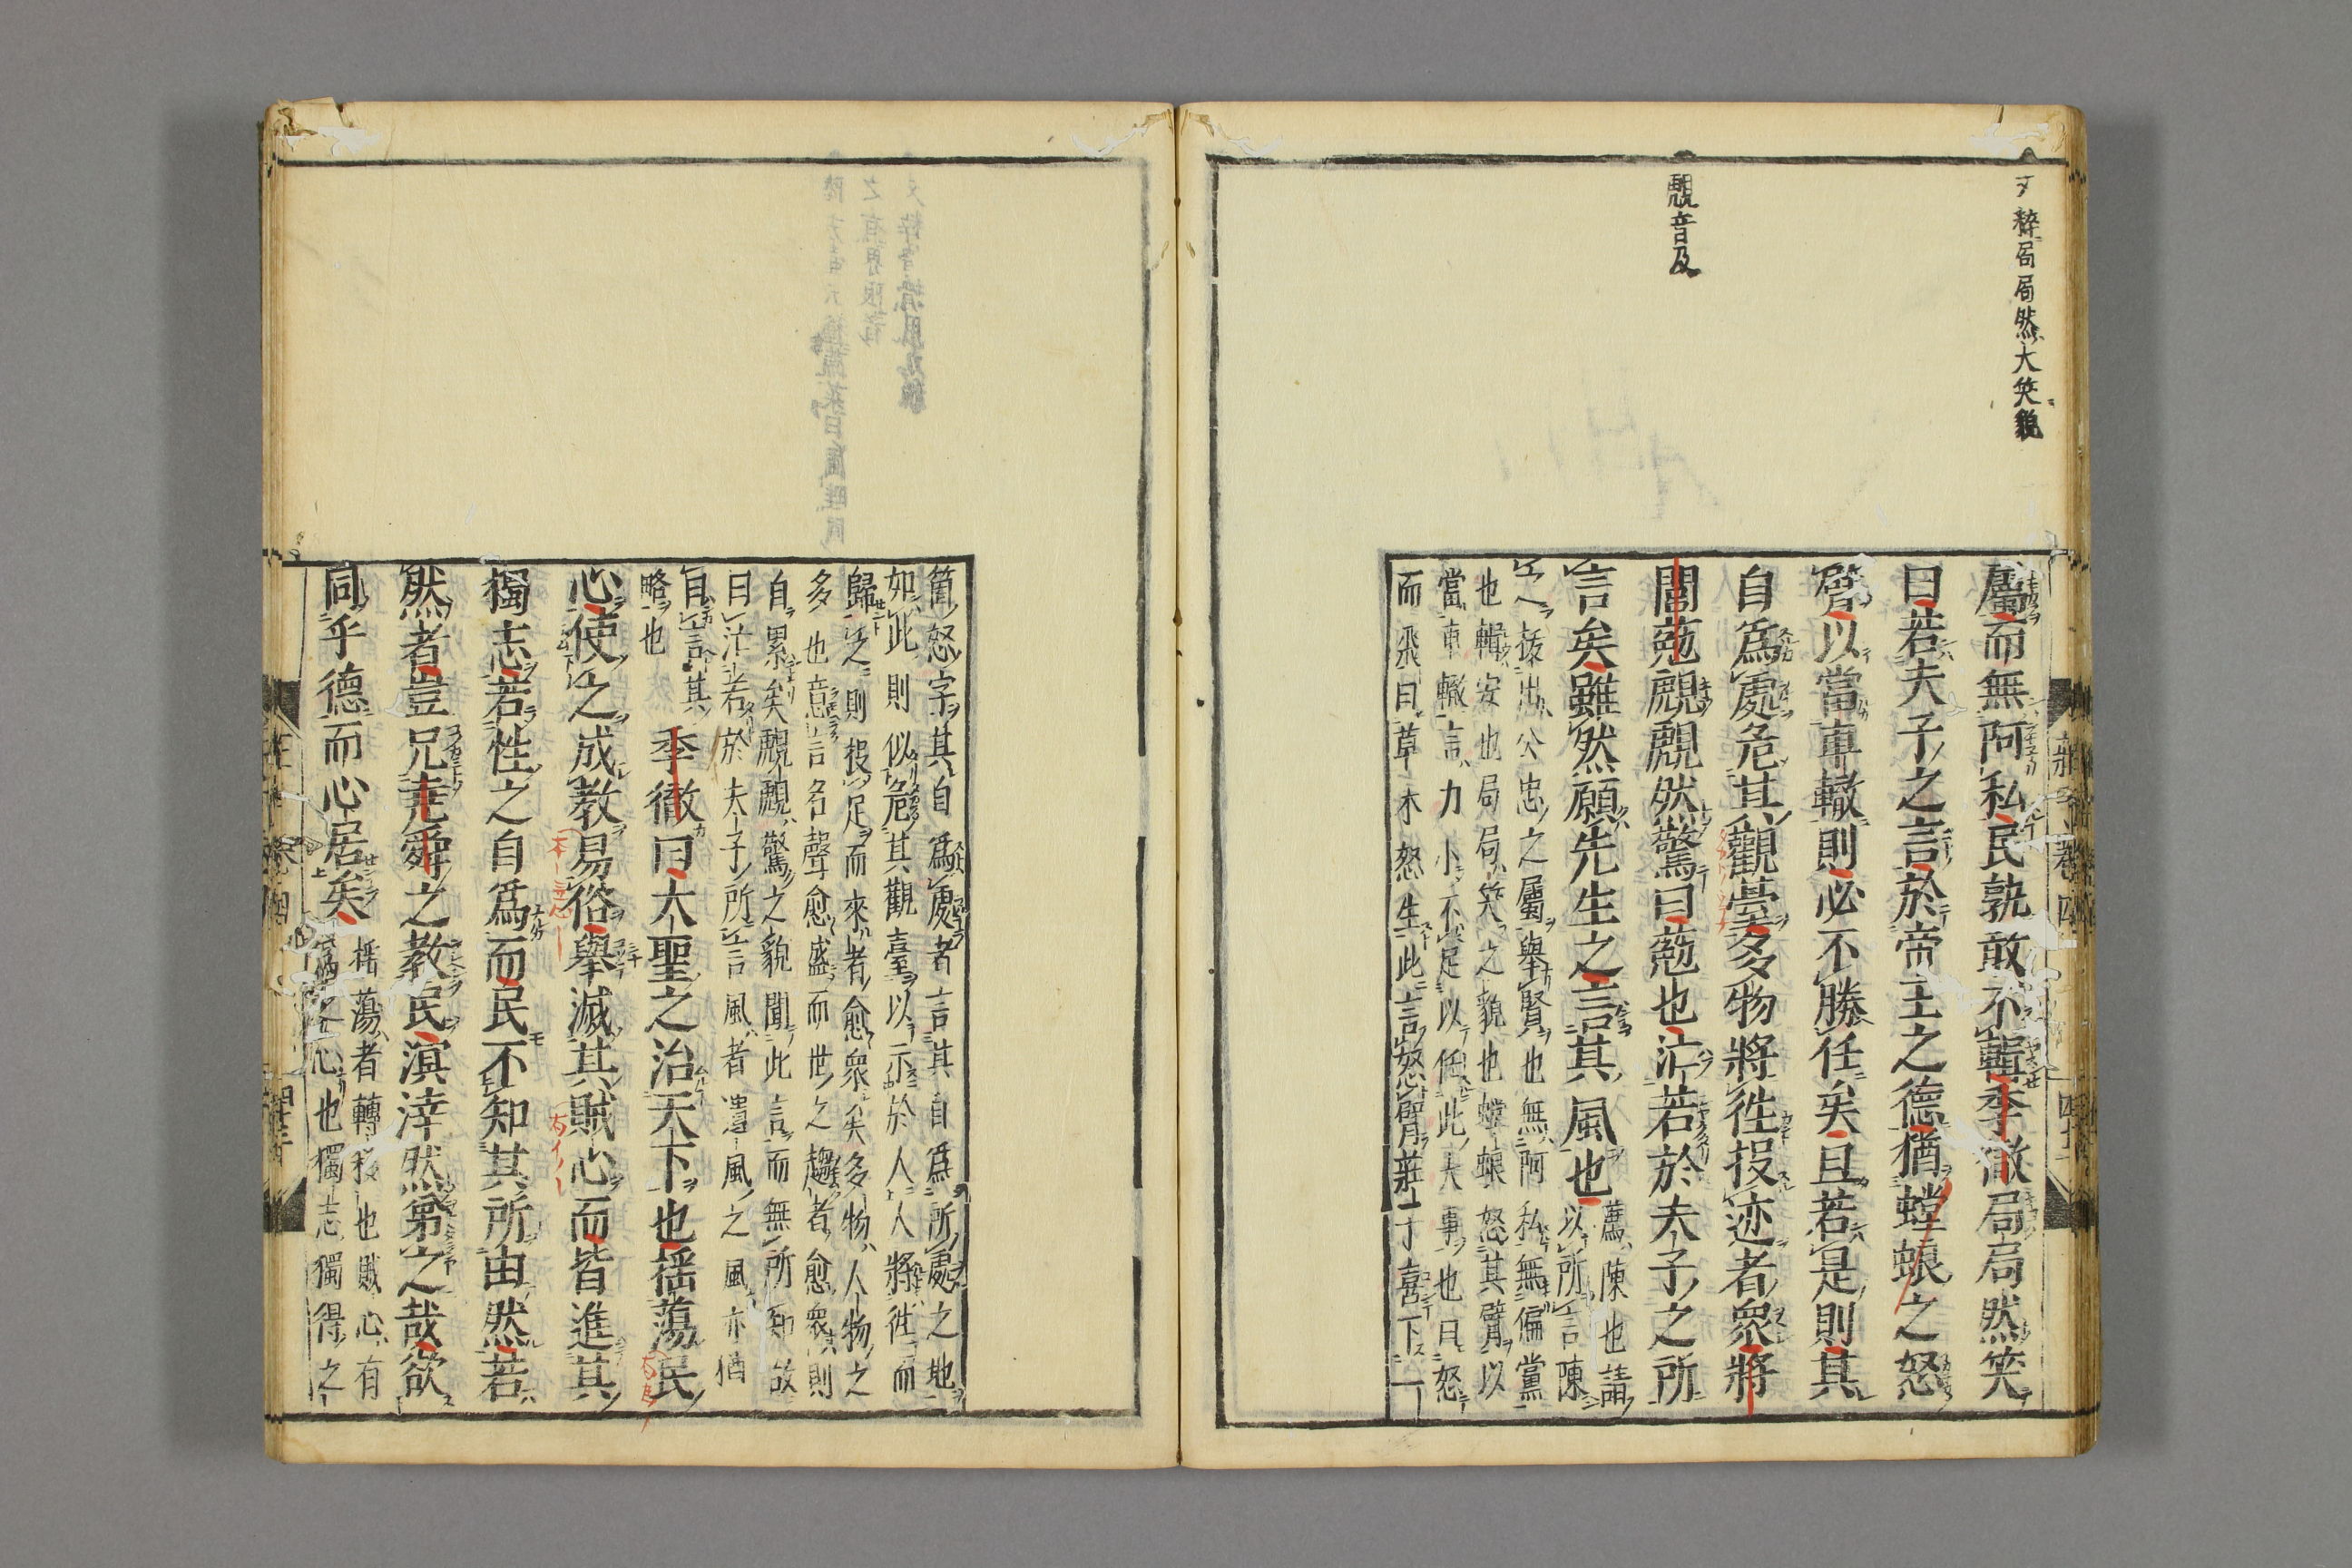 文粹局局然大笑貌
覤音及
屬而無阿私民孰敢不輯季徹局局然笑
曰若夫子之言於帝王之德猶螳蜋之怒
臂以當車轍則必不勝任矣且若是則其
自為處危其觀臺多物將往投迹者衆將
閭葂覤覤然驚曰葂也汒若於夫子之所
言矣雖然願先生之言其風也
薦陳也請
以所言陳
之拔出公忠之屬舉賢也無阿私無偏黨
也輯安也局局笑之貌也螳蜋怒其臂以
當車轍言力小不足以任此大事也曰怒
而飛曰草木怒生此言怒臂莊子喜下一
箇怒字其自為處者言其自為所處之地
如此則似危其觀臺以示於人人將往而
歸之則投足而來者愈衆矣多物人物之
多也意言名聲愈盛而世之趨者愈衆則
自累矣覤覤驚之貌聞此言而無所知故
曰汒若於夫子所言風者遺風之風亦猶
自言其
略也
季徹曰大聖之治天下也揺蕩民
心使之成教易俗舉滅其賊心而皆進其
獨志若性之自為而民不知其所由然若
然者豈兄堯舜之教民溟涬然第之哉欲
同乎德而心居矣
揺蕩者轉移也賊心有
為之心也獨志獨得之